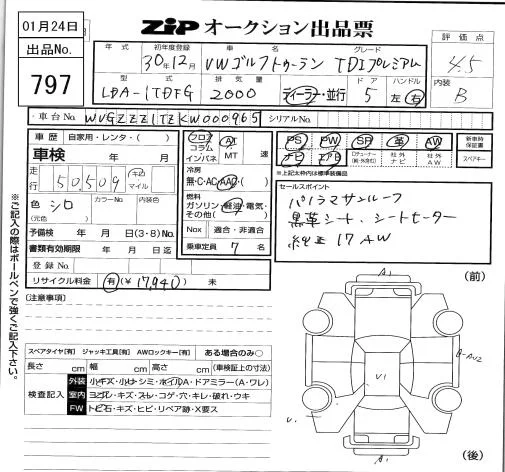 01月24日
出品No.
797
ZIP オークション出品票
評価点
4.5
内装
B
年式 初年度登録 車名 グレード
30年12月 VWゴルフトゥーラン TDIプレミアム
型式 排気量 ドア ハンドル
LDA-1TDFG 2000 ディーラー・並行 5 左 右
車台No. WVGZZZ1TZKW000965 シリアルNo.
車歴 自家用・レンタ・( )
車検 年 月
走行 50,509 キロ マイル
色 シロ カラーNo. 内装色
(元色)
予備検 年 月 日(3・8)No.
書類有効期限 年 月 日迄
登録No.
リサイクル料金 有(¥17,940) 未
フロア コラム インパネ
AT MT 速
冷房
無・C・AC・AAC・( )
燃料
ガソリン・軽油・電気・その他( )
Nox 適合・非適合
乗車定員 7 名
PS PW SR 革 AW
ナビ エアB 社外ナビ 社外AW
新車時保証書
スペアキー
※上記太枠内は標準装備品
セールスポイント
パノラマサンルーフ
黒革シート、シートヒーター
純正17AW
※ご記入の際はボールペンで強くご記入下さい。
[注意事項]
スペアタイヤ[有] ジャッキ工具[有] AWロックキー[有] ある場合のみ○
長さ cm 幅 cm 高さ cm (車検証上の寸法)
検査記入
外装 小キズ・小凹・シミ・ホイルA・ドアミラー(A・ワレ)
室内 ヨゴレ・キズ・スレ・コゲ・穴・キレ・破れ・ウキ
FW トビ石・キズ・ヒビ・リペア跡・X要ス
(前)
A1
B-AU2
U1
U.
A1
(後)